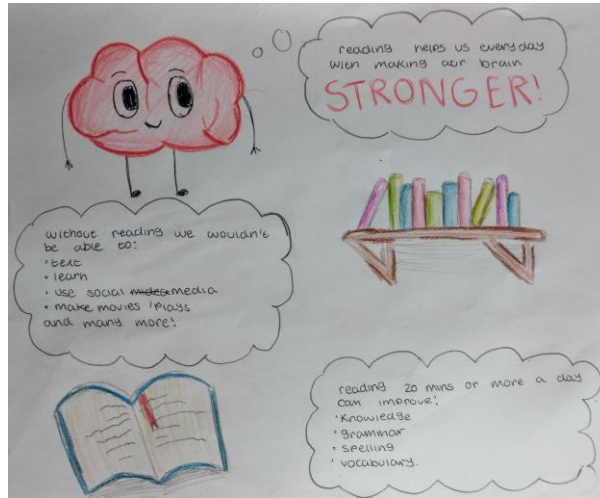 reading helps us everyday
with making our brain
STRONGER!
without reading we wouldn't
be able to:
• text
• learn
• use social media
• make movies / plays
and many more!
reading 20 mins or more a day
can improve:
• knowledge
• grammar
• spelling
• vocabulary.